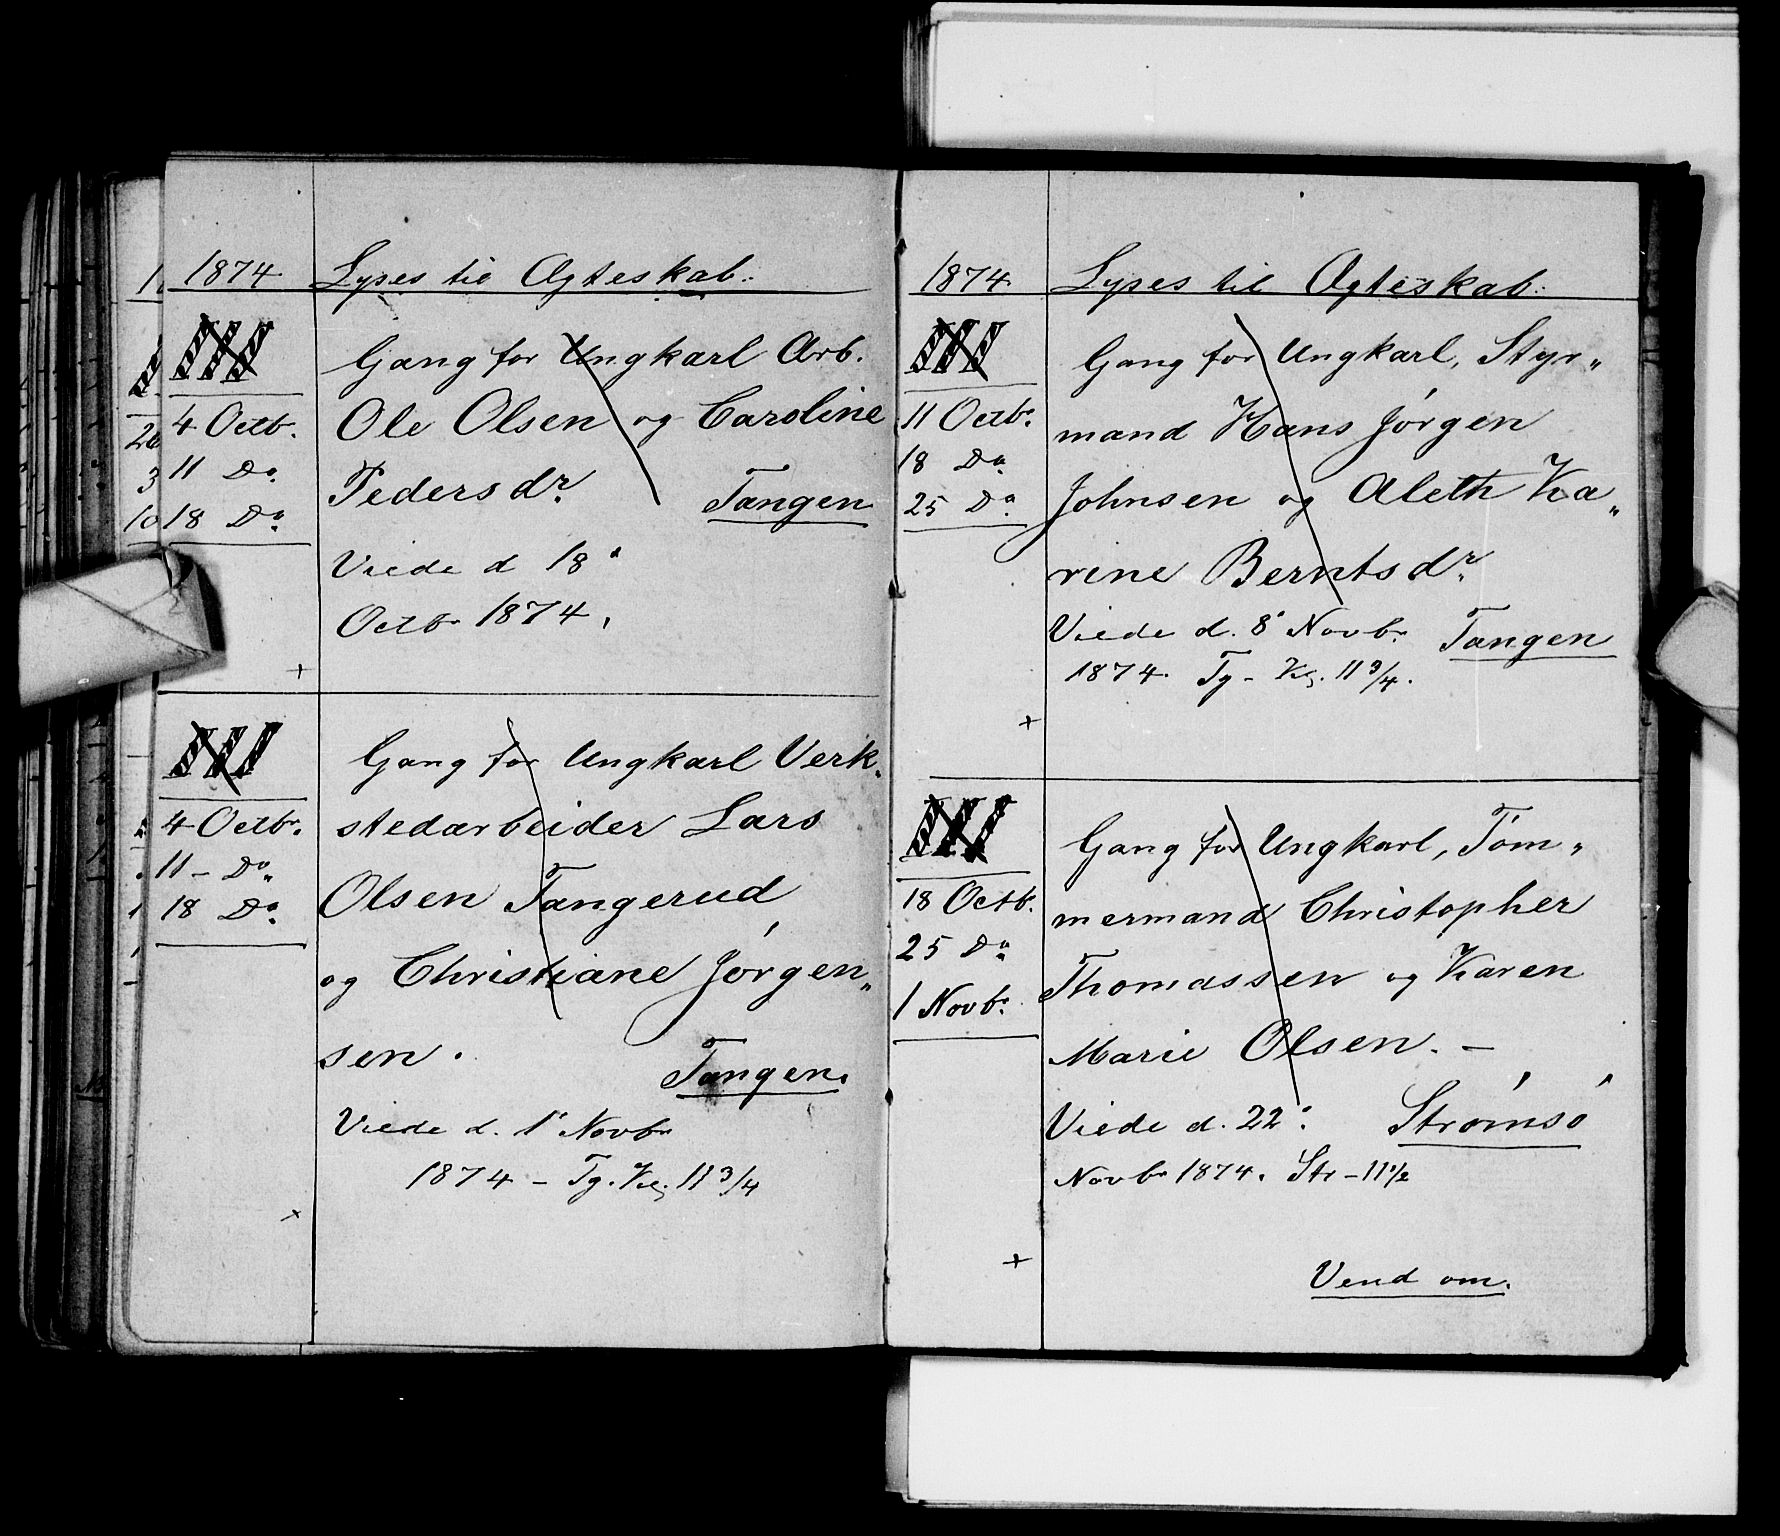 1874 Lyses til Ægteskab:
III
4 Octb.
11 Do
18 Do
Gang for Ungkarl Arb.
Ole Olsen og Caroline
Pedersdr.
Tangen
Viede d 18
Octbr 1874.
+
III
4 Octbr.
11 – Do
18 Do
Gang for Ungkarl Verk„
stedarbeider Lars
Olsen Tangerud
og Christiane Jørgen„
sen.
Tangen.
Viede d. 1 Novbr
1874 – Tg. Kl. 11 3/4
+
1874 Lyses til Ægteskab:
III
11 Octb.
18 Do
25 Do
Gang for Ungkarl, Styr„
mand Hans Jørgen
Johnsen og Aleth Ka„
rine Berntsdr.
Viede d. 8 Novbr. Tangen
1874. Tg – Kl. 11 3/4.
+
III
18 Octb.
25 Do
1 Novb.
Gang for Ungkarl, Töm„
mermand Christopher
Thomassen og Karen
Marie Olsen. –
Viede d. 22 Strømsø
Novbr 1874. Str – 11 1/2
+
Vend om.